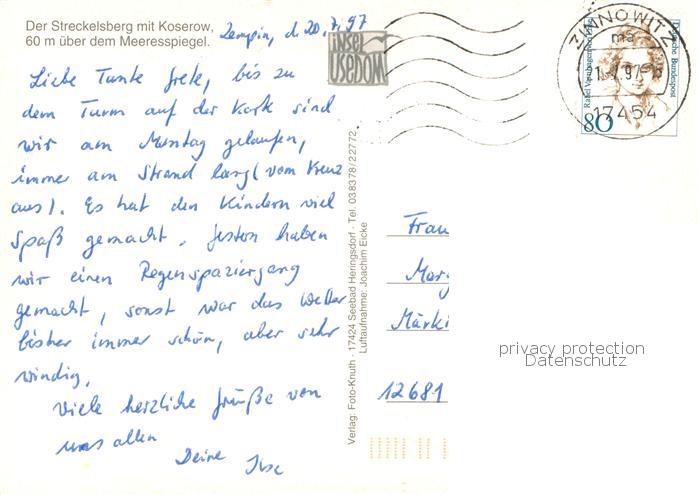 Der Streckelsberg mit Koserow,
60 m über dem Meeresspiegel.
Zempin, d. 20.7.97
insel
USEDOM
Liebe Tante Grete, bis zu
dem Turm auf der Karte sind
wir am Montag gelaufen,
immer am Strand lang (vom Kreuz
aus). Es hat den Kindern viel
Spaß gemacht. Gestern haben
wir einen Regenspaziergang
gemacht, sonst war das Wetter
bisher immer schön, aber sehr
windig,
Viele herzliche Grüße von
uns allen
Deine Ilse
Verlag: Foto-Knuth · 17424 Seebad Heringsdorf · Tel. 038378/22772
Luftaufnahme: Joachim Eicke
ZINNOWITZ
ma
17454
Deutsche Bundespost
Rahel Varnhagen von Ense
80
Frau
Marg
Märki
12681
privacy protection
Datenschutz